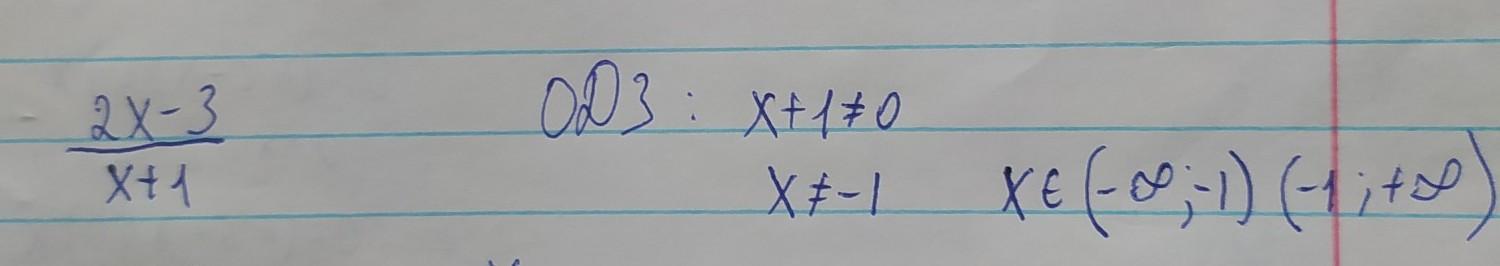 (2x-3)/(x+1) ОДЗ: x+1≠0
x≠-1 x∈(-∞;-1)(-1;+∞)